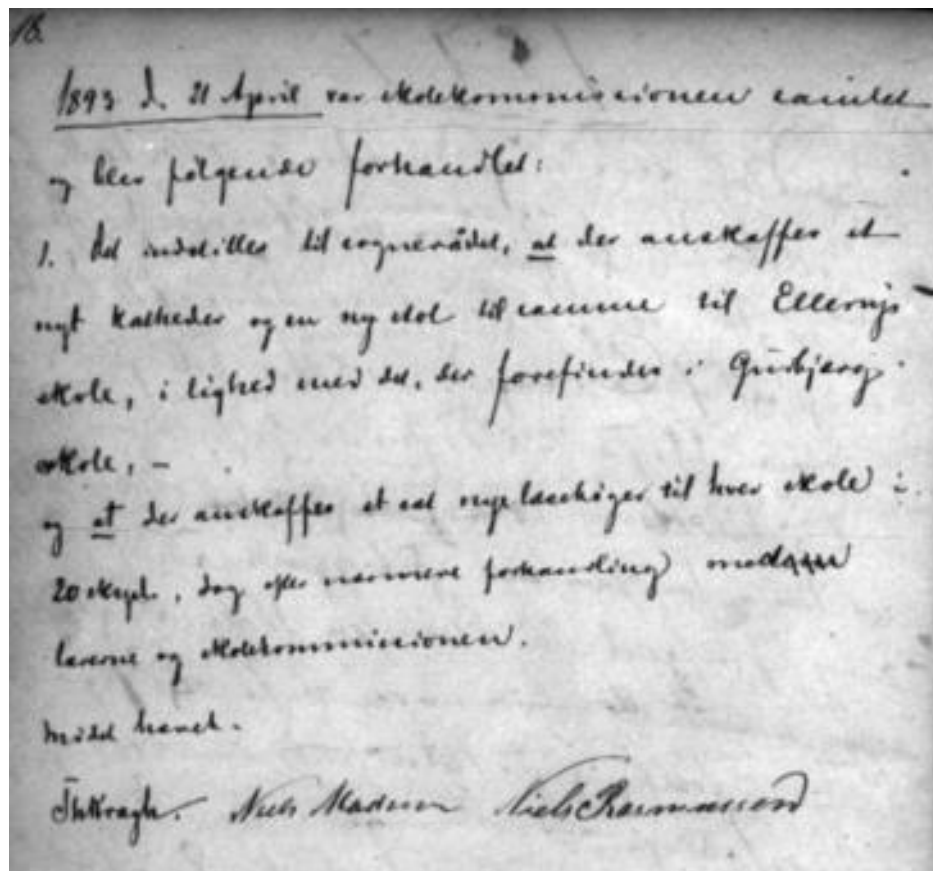 18.
1893 d. 21 April var skolekommissionen samlet
og blev følgende forhandlet:
1. Det indstilles til sognerådet, at der anskaffes et
nyt katheder og en ny stol til samme til Ellerup
skole, i lighed med det, der forefindes i Gudbjerg
skole, –
og at der anskaffes et sæt nye læsebøger til hver skole i
20 expl., dog efter nærmere forhandling med
lærerne og skolekommissionen.
Mødet hævet.
Niels Madsen Niels Rasmussen